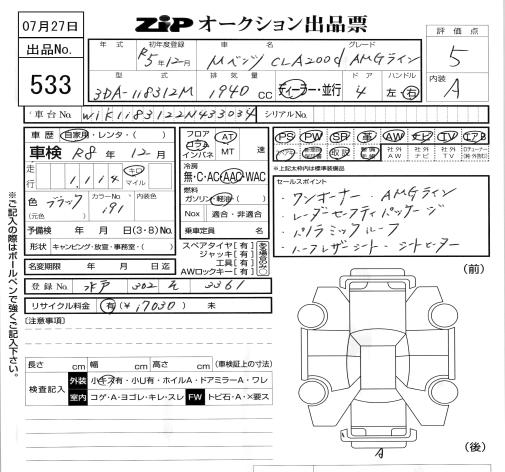 07月27日
ZiP オークション出品票
出品No.
533
年式
初年度登録
R5年12月
車名
Mベンツ CLA200d
グレード
AMGライン
評価点
5
内装
A
型式
3DA-118312M
排気量
1940 CC
ディーラー・並行
ドア
4
ハンドル
左・右
車台No.
W1K1183122N433034
シリアルNo.
車歴 自家用・レンタ・( )
車検 R8年 12月
走行
1,114
キロ
マイル
色 ブラック
(元色)
カラーNo.
191
内装色
予備検 年 月 日(3・8)No.
形状 キャンピング・放宣・事務室・( )
名変期限 年 月 日迄
フロア
コラム
インパネ
AT
MT 速
冷房
無・C・AC・AAC・WAC
燃料
ガソリン・軽油・( )
Nox 適合・非適合
乗車定員 名
スペアタイヤ[有]
ジャッキ[有]
工具[有]
AWロックキー[有]
PS PW SR 革 AW ナビ TV エアB
社外AW 社外ナビ 社外TV
※上記太枠内は標準装備品
セールスポイント
・ワンオーナー ・AMGライン
・レーダーセーフティパッケージ
・パノラミックルーフ
・ハーフレザーシート ・シートヒーター
登録No. 水戸 302 そ 3361
リサイクル料金 有(¥ 17030) 未
(注意事項)
長さ cm 幅 cm 高さ cm (車検証上の寸法)
検査記入
外装 小キズ有・小U有・ホイルA・ドアミラーA・ワレ
室内 コゲ・A・ヨゴレ・キレ・スレ FW トビ石・A・×要ス
※ご記入の際はボールペンで強くご記入下さい。
(前)
(後)
A